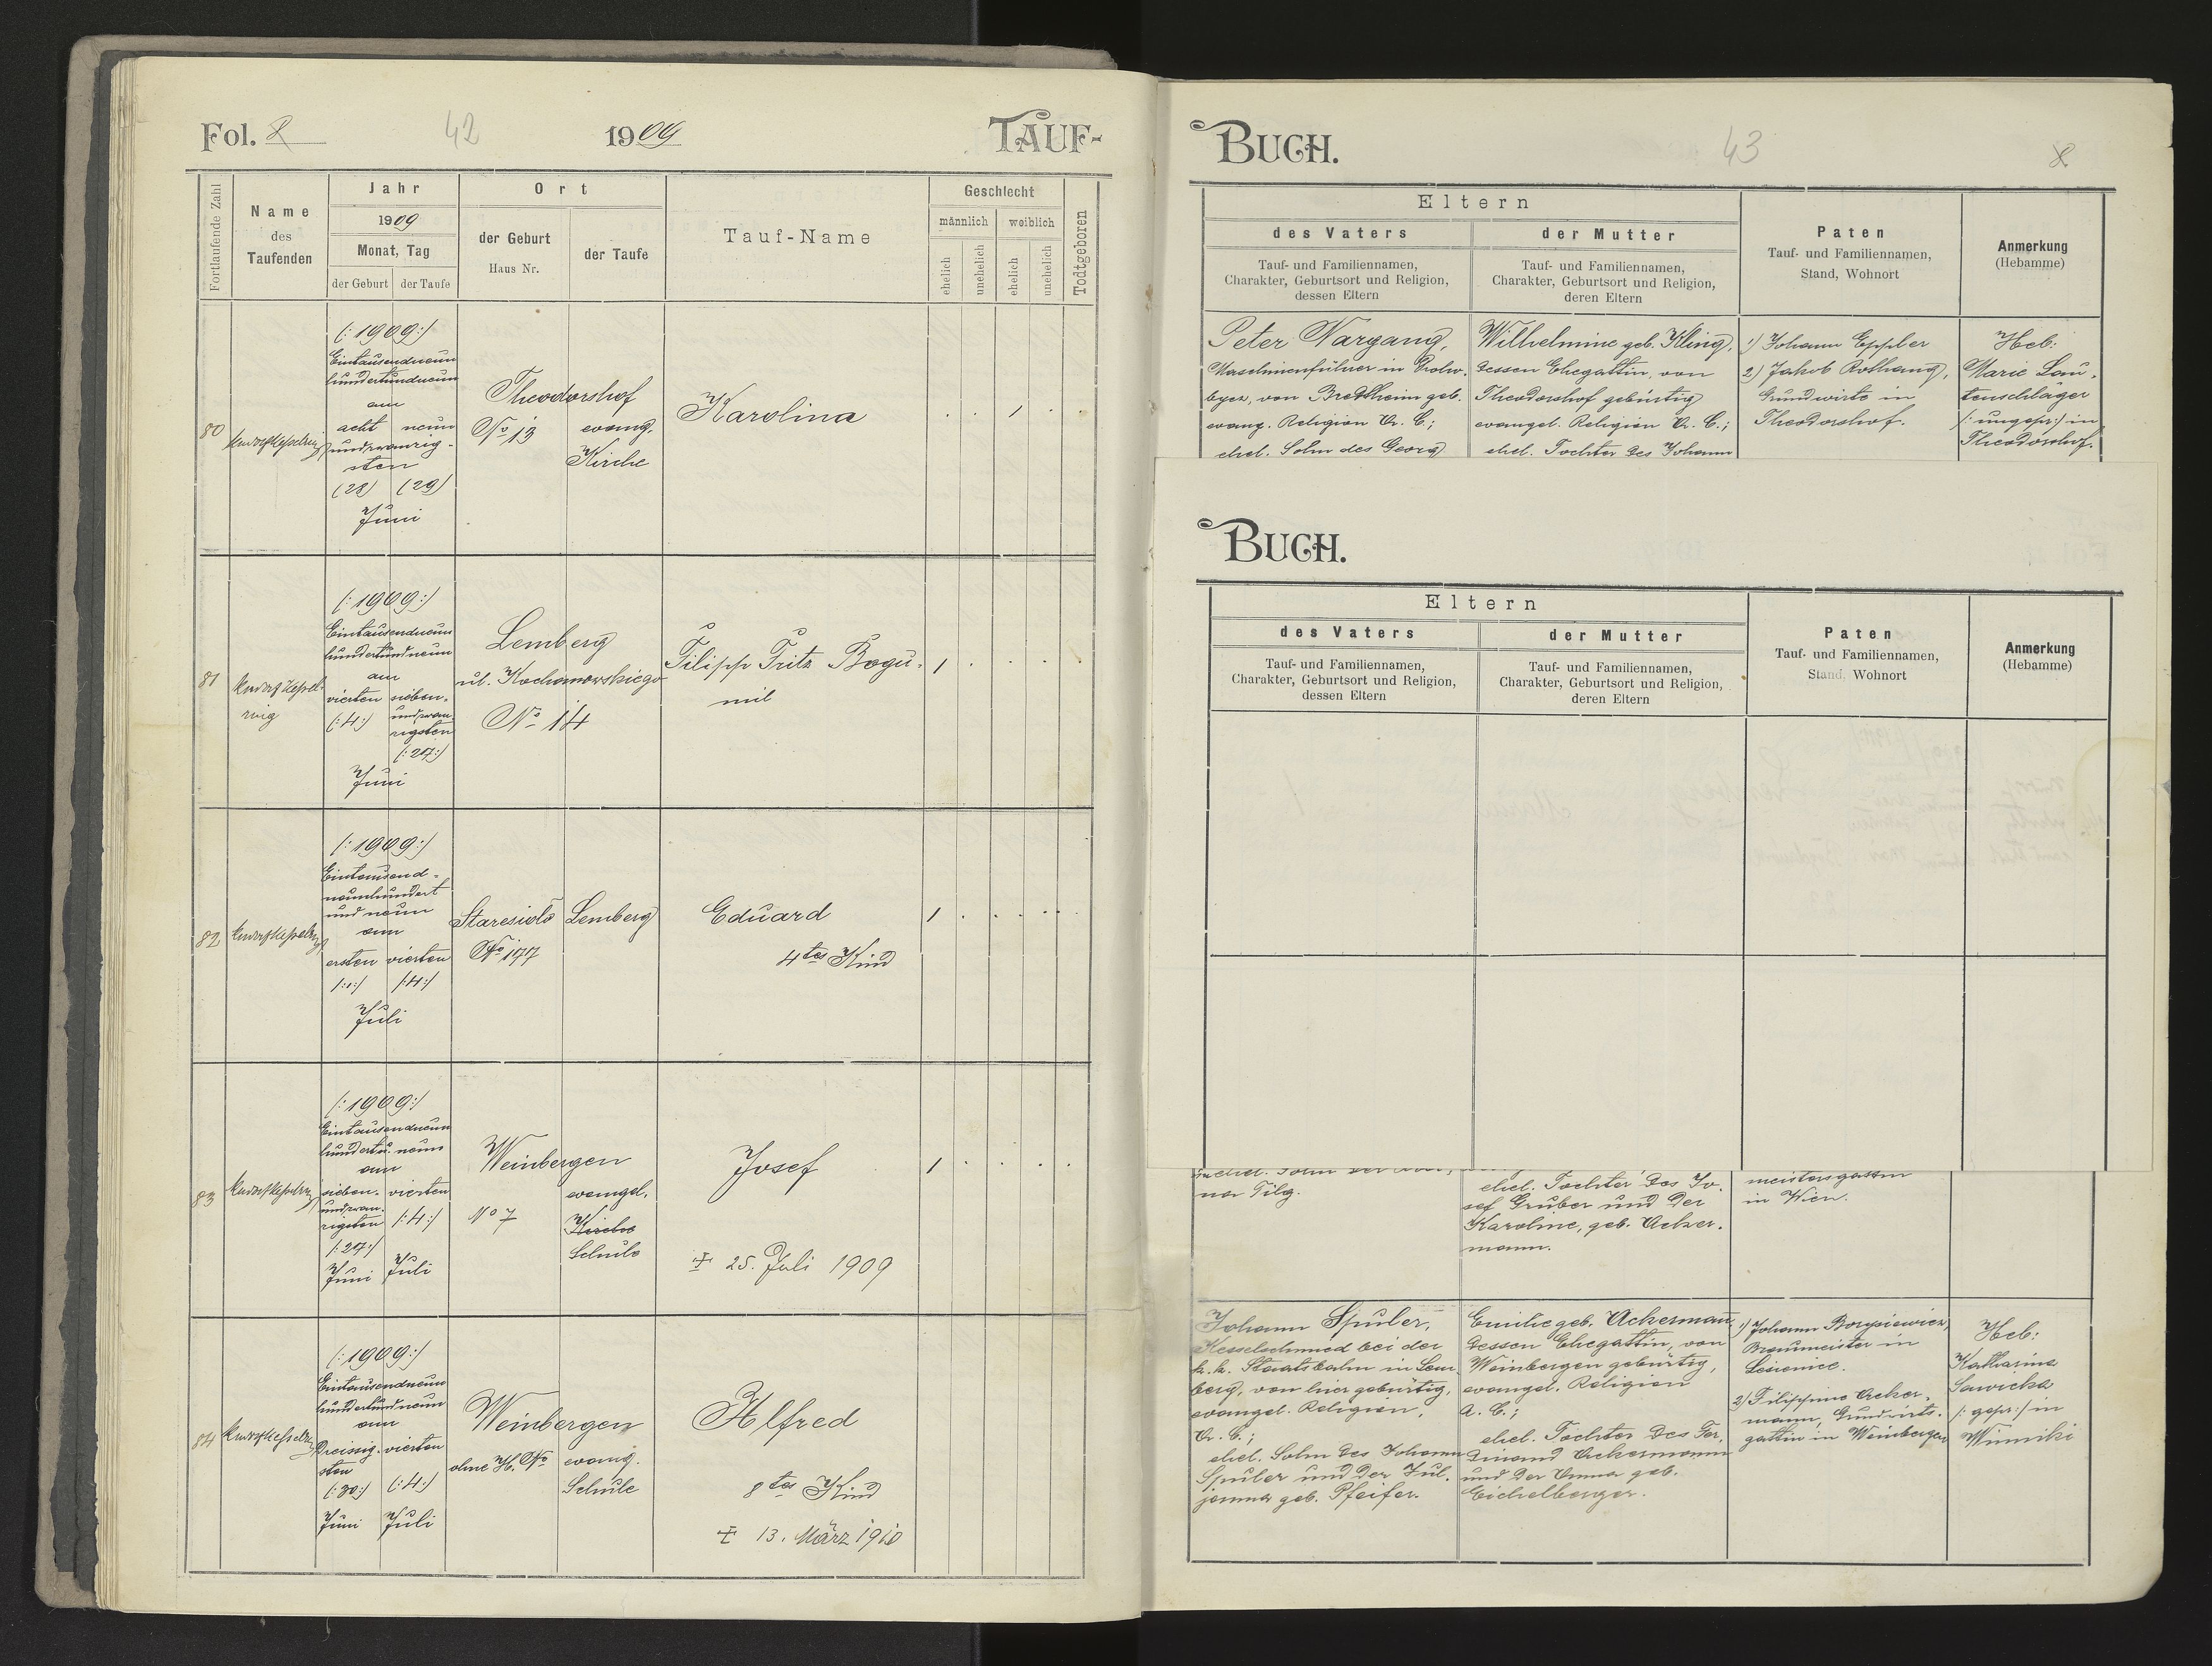 Fol. 8
42
1909
TAUF-
Fortlaufende Zahl
Name
des
Taufenden
Jahr
1909
Monat, Tag
der Geburt
der Taufe
Ort
der Geburt
Haus Nr.
der Taufe
Tauf-Name
Geschlecht
männlich
weiblich
ehelich
unehelich
ehelich
unehelich
Todtgeboren
80
(:1909:)
Eintausendneun
hundertundneun
am
acht neun
undzwanzig-
sten
(28) (29)
Juni
Theodorshof
No 13
evang.
Kirche
Karolina
81
(:1909:)
Eintausendneun
hundertundneun
am
vierten sieben-
(:4:) undzwan
zigsten
(:27:)
Juni
Lemberg
ul. Kochanowskiego
No 14
Filipp Fritz Bogu-
mil
82
(:1909:)
Eintausend-
neunhundert
und neun
am
ersten vierten
/:1:/ /:4:/
Juli
Staresioło
No 177
Lemberg
Eduard
4tes Kind
83
(:1909:)
Eintausendneun
hundertu. neun
am
sieben- vierten
undzwan-
zigsten /:4:/
/:27:/
Juni Juli
Weinbergen
No 7
evangel.
Kirche
Schule
Josef
25. Juli 1909
84
(:1909:)
Eintausendneun
hundertundneun
am
Dreissig- vierten
sten
(:30:) (:4:)
Juni Juli
Weinbergen
ohne H. No
evang.
Schule
Alfred
8tes Kind
13. März 1910
BUCH.
43
8
Eltern
des Vaters
Tauf- und Familiennamen,
Charakter, Geburtsort und Religion,
dessen Eltern
der Mutter
Tauf- und Familiennamen,
Charakter, Geburtsort und Religion,
deren Eltern
Paten
Tauf- und Familiennamen,
Stand, Wohnort
Anmerkung
(Hebamme)
Peter Wargang,
Maschinenführer in
von Brettheim geb.
evang. Religion A. C.;
ehel. Sohn des Georg
Wilhelmine geb. Kling,
dessen Ehegattin, von
Theodorshof gebürtig
evangel. Religion A. C.;
ehel. Tochter des Johann
1) Johann Eppler
2) Jakob Rothaug,
Grundwirte in
Theodorshof.
Heb:
Marie Lau-
tenschläger
/: ungepr:/ in
Theodorshof.
BUCH.
Eltern
des Vaters
Tauf- und Familiennamen,
Charakter, Geburtsort und Religion,
dessen Eltern
der Mutter
Tauf- und Familiennamen,
Charakter, Geburtsort und Religion,
deren Eltern
Paten
Tauf- und Familiennamen,
Stand, Wohnort
Anmerkung
(Hebamme)
na Filg.
ehel. Tochter des Jo-
sef Gruber und der
Karoline, geb. Acker-
mann.
meistersgattin
in Wien.
Johann Spuler,
Kesselschmied bei der
k. k. Staatsbahn in Lem
berg, von hier gebürtig,
evangel. Religion,
A. C.;
ehel. Sohn des Johann
Spuler und der Jul-
janna geb. Pfeifer.
Emilie geb. Ackermann,
dessen Ehegattin, von
Weinbergen gebürtig,
evangel. Religion
A. C.;
ehel. Tochter des Fer-
dinand Ackermann
und der Emma geb.
Eichelberger.
1) Johann Borysiewicz,
Braumeister in
Lesienice.
2) Filippine Acker-
mann, Grundwirts-
gattin in Weinbergen
Heb:
Katharina
Sawicka
/: gepr:/ in
Winniki